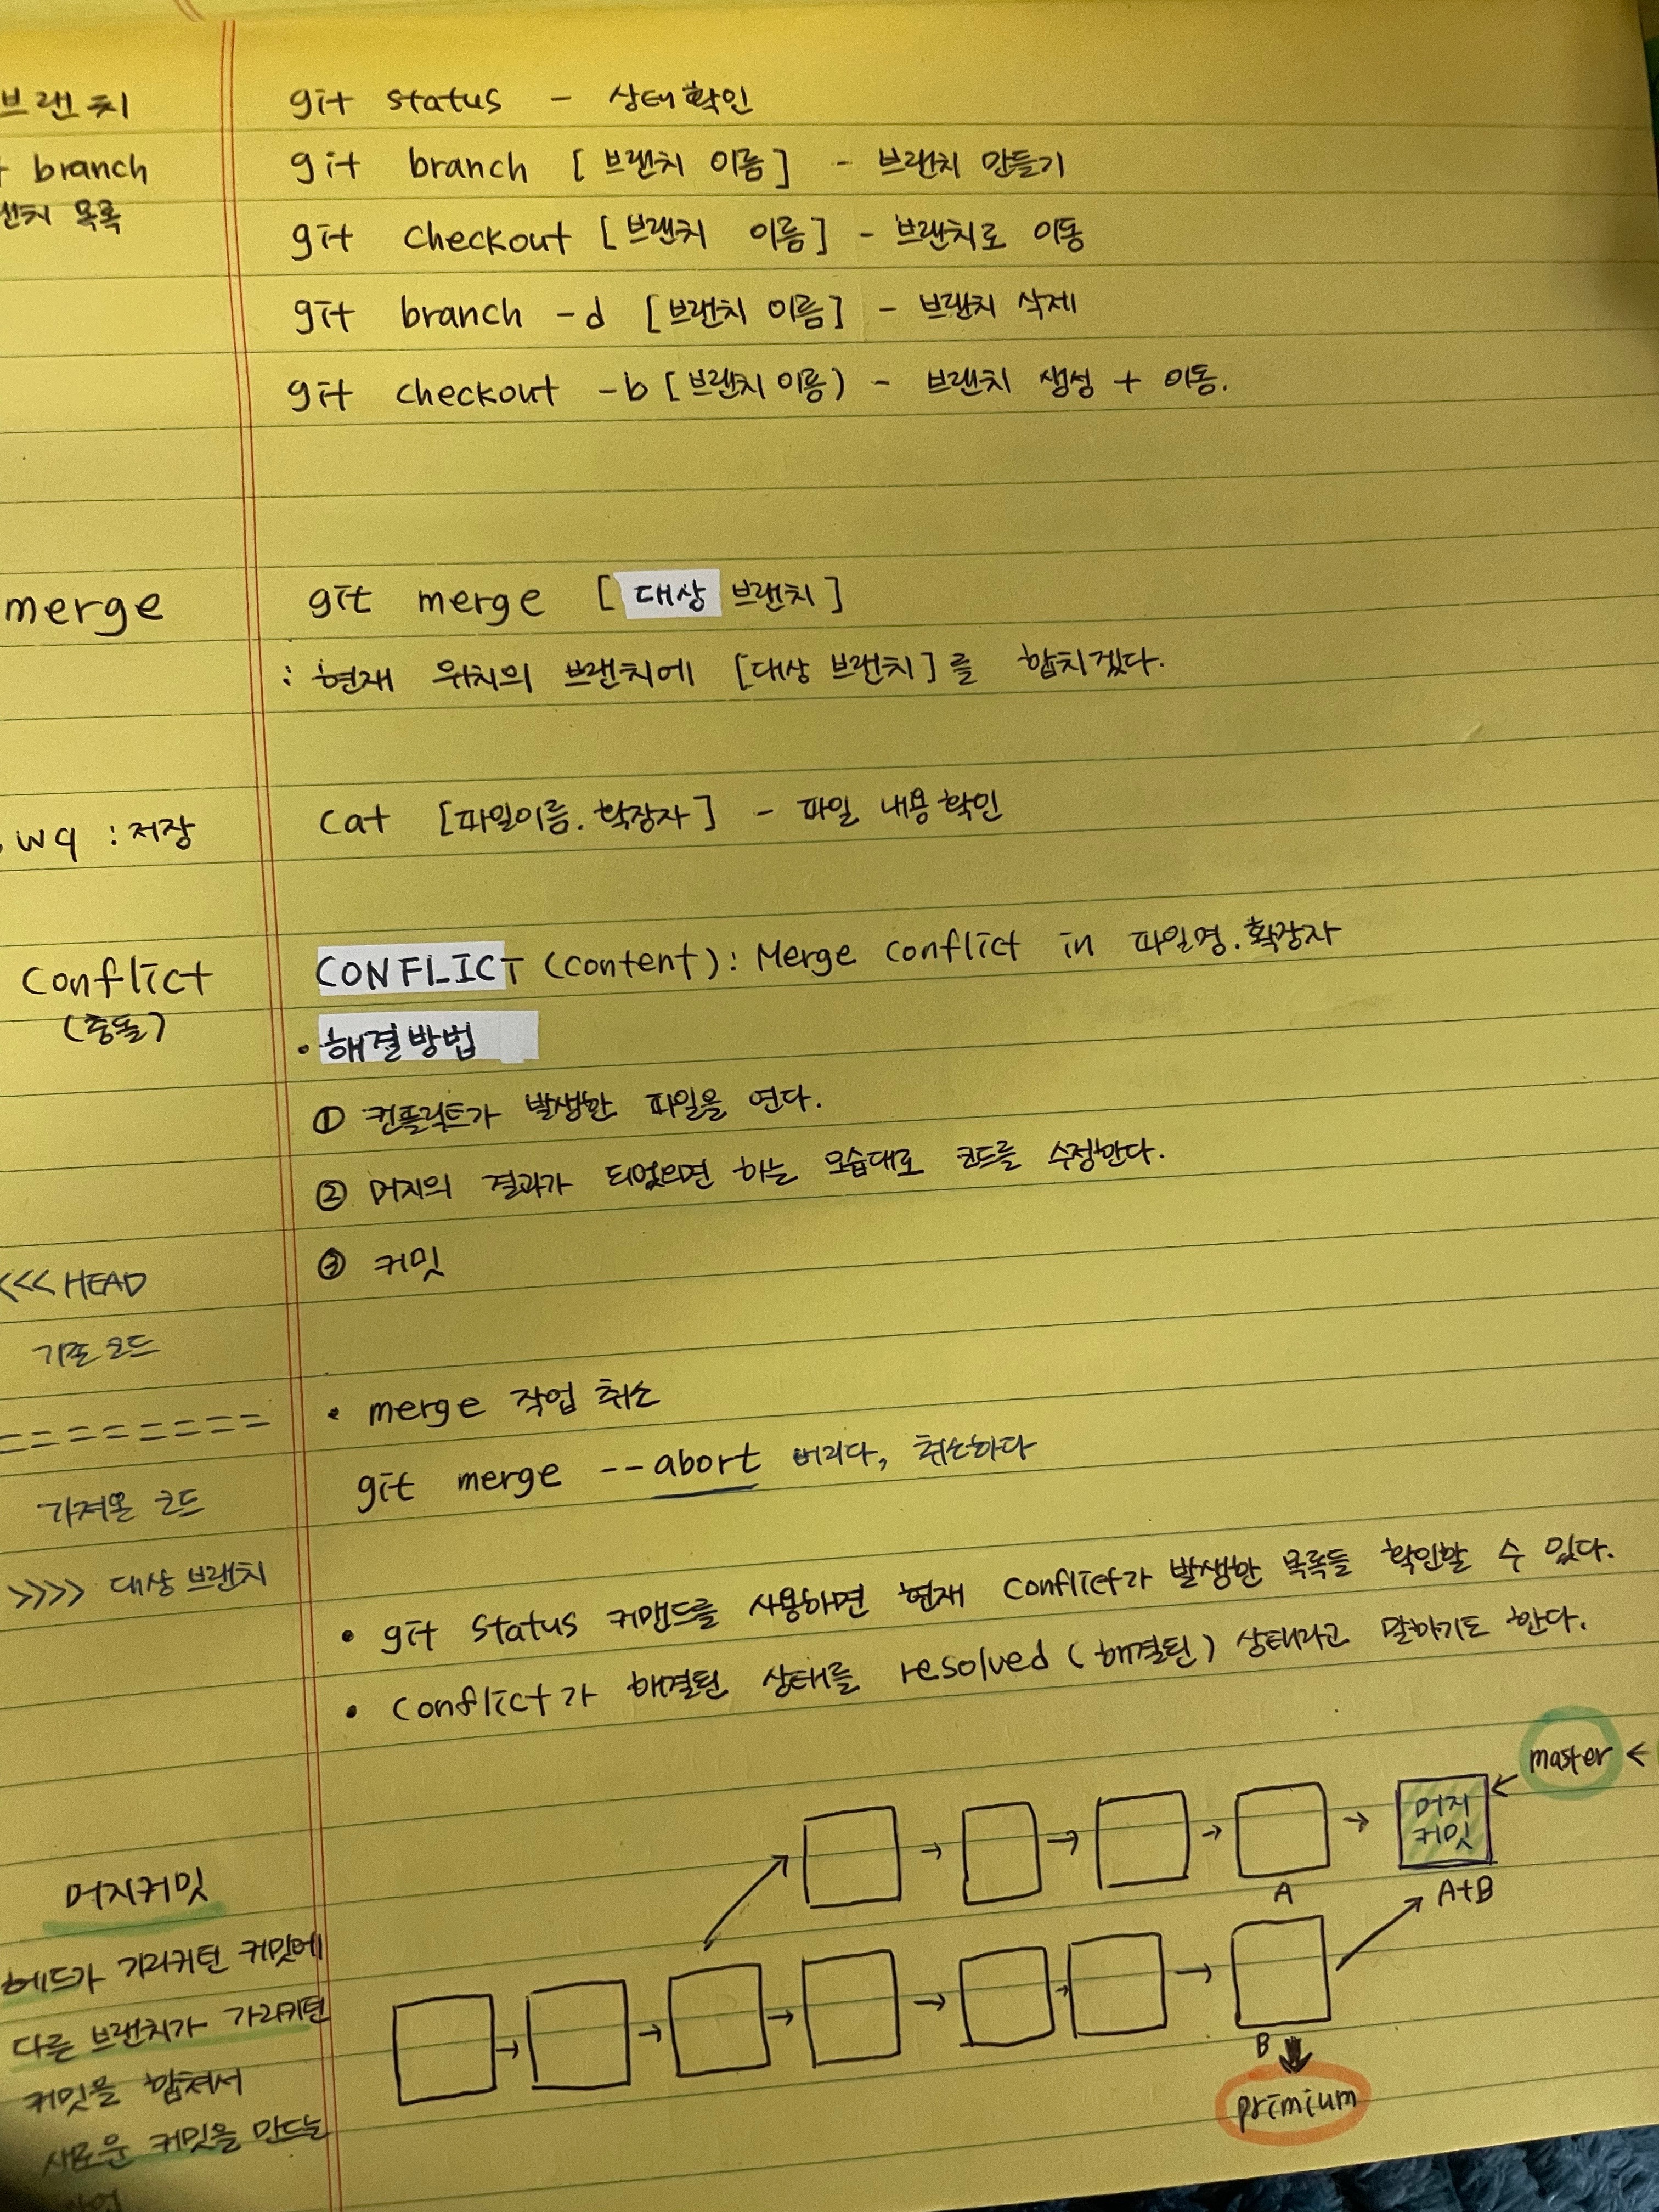 브랜치
branch
목록
git status - 상태확인
git branch [브랜치 이름] - 브랜치 만들기
git checkout [브랜치 이름] - 브랜치로 이동
git branch -d [브랜치 이름] - 브랜치 삭제
git checkout -b [브랜치 이름) - 브랜치 생성 + 이동.
merge
git merge [대상 브랜치]
: 현재 위치의 브랜치에 [대상 브랜치]를 합치겠다.
wq : 저장
cat [파일이름.확장자] - 파일 내용 확인
conflict
(충돌)
CONFLICT (content): Merge conflict in 파일명.확장자
• 해결방법
① 컨플릭트가 발생한 파일을 연다.
② 머지의 결과가 되었으면 하는 모습대로 코드를 수정한다.
③ 커밋
<<< HEAD
기존 코드
========
가져온 코드
>>>> 대상 브랜치
• merge 작업 취소
git merge --abort 버리다, 취소하다
• git status 커맨드를 사용하면 현재 conflict가 발생한 목록들 확인할 수 있다.
• conflict가 해결된 상태를 resolved (해결된) 상태라고 말하기도 한다.
머지커밋
헤드가 가리키던 커밋에
다른 브랜치가 가리키던
커밋을 합쳐서
새로운 커밋을 만드는
작업
master <
머지
커밋
A
A+B
B
primium